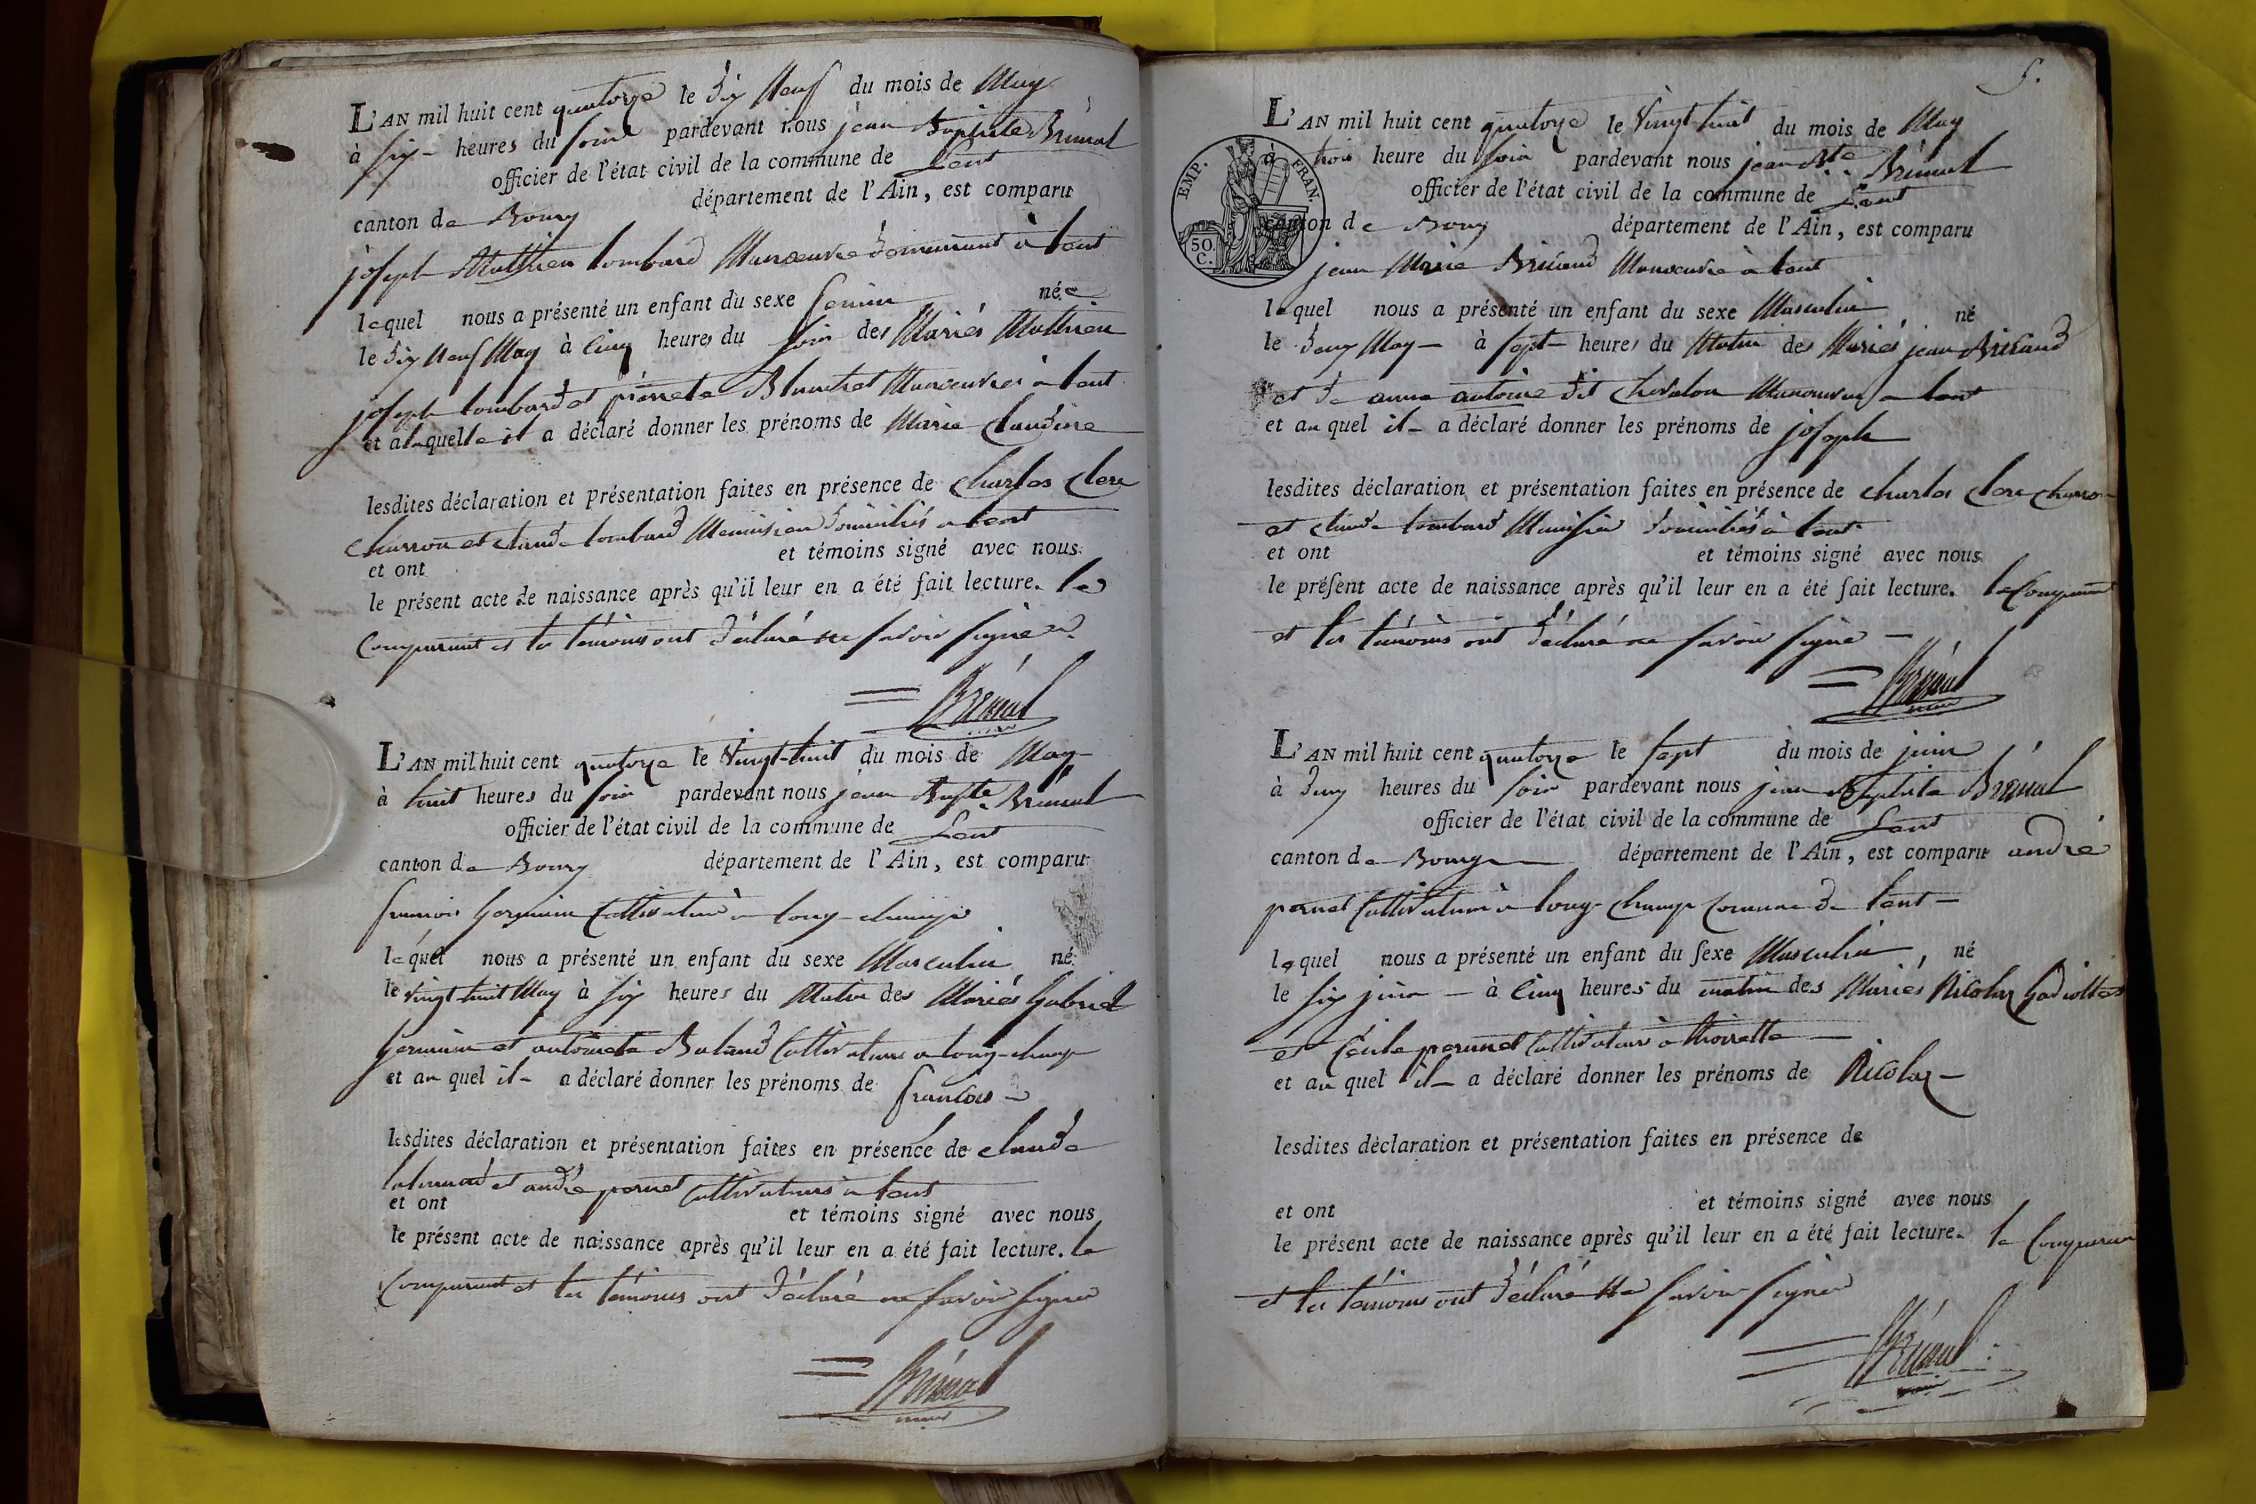 L'AN mil huit cent quatorze le dix Neuf du mois de May
à six heures du soir pardevant nous jean Baptiste Brunet
officier de l'état civil de la commune de Lent
canton de Bourg département de l'Ain, est comparu
joseph Mathieu lombard Manœuvre demeurant à lent
lequel nous a présenté un enfant du sexe feminin née
le dix Neuf May à Cinq heures du soir des Mariés Mathieu
joseph lombard et pierrete Blanchet Manœuvres à lent
et a laquelle il a déclaré donner les prénoms de Marie Claudine
lesdites déclaration et présentation faites en présence de Charles Clerc
Charron et Claude lombard Menuisier domiciliés a lent
et ont et témoins signé avec nous
le présent acte de naissance après qu'il leur en a été fait lecture. le
Comparant et les témoins ont déclaré ne savoir signer
L'AN mil huit cent quatorze le Vingt-huit du mois de May
à huit heures du soir pardevant nous jean Bapte
officier de l'état civil de la commune de Lent
canton de Bourg département de l'Ain, est comparu
françois Germain Cultivateur à long-champ
lequel nous a présenté un enfant du sexe Masculin né
le vingt huit May à six heures du Matin des Mariés Gabriel
Germain et antoinete Buland Cultivateurs a long-champ
et au quel il a déclaré donner les prénoms de françois
lesdites déclaration et présentation faites en présence de claude
et andré pernet Cultivateurs a lent
et ont et témoins signé avec nous
le présent acte de naissance après qu'il leur en a été fait lecture. le
Comparant et les témoins ont déclaré ne savoir signer
5.
L'AN mil huit cent quatorze le Vingt huit du mois de May
à trois heure du soir pardevant nous jean Bte
EMP. FRAN.
50 C.
officier de l'état civil de la commune de Lent
canton de Bourg département de l'Ain, est comparu
jean Marie Manœuvre à lent
lequel nous a présenté un enfant du sexe Masculin, né
le May à sept heures du Matin des Mariés jean
et de anne antoine dit Chevalon Manouvriers a lent
et au quel il a déclaré donner les prénoms de joseph
lesdites déclaration et présentation faites en présence de charles Clerc Charron
et claude lombard Menuisier domiciliés à lent
et ont et témoins signé avec nous
le présent acte de naissance après qu'il leur en a été fait lecture. le Comparant
et les témoins ont déclaré ne savoir signé
L'AN mil huit cent quatorze le sept du mois de juin
à heures du soir pardevant nous jean Baptiste
officier de l'état civil de la commune de Lent
canton de Bourg département de l'Ain, est comparu andré
pernet Cultivateur à long-champ Comune de lent
lequel nous a présenté un enfant du sexe Masculin, né
le six juin à Cinq heures du matin des Mariés Nicolas
et Cécile pernet Cultivateurs a
et au quel il a déclaré donner les prénoms de Nicolas
lesdites déclaration et présentation faites en présence de
et ont et témoins signé avec nous
le présent acte de naissance après qu'il leur en a été fait lecture. le Comparant
et les témoins ont déclaré ne savoir signer